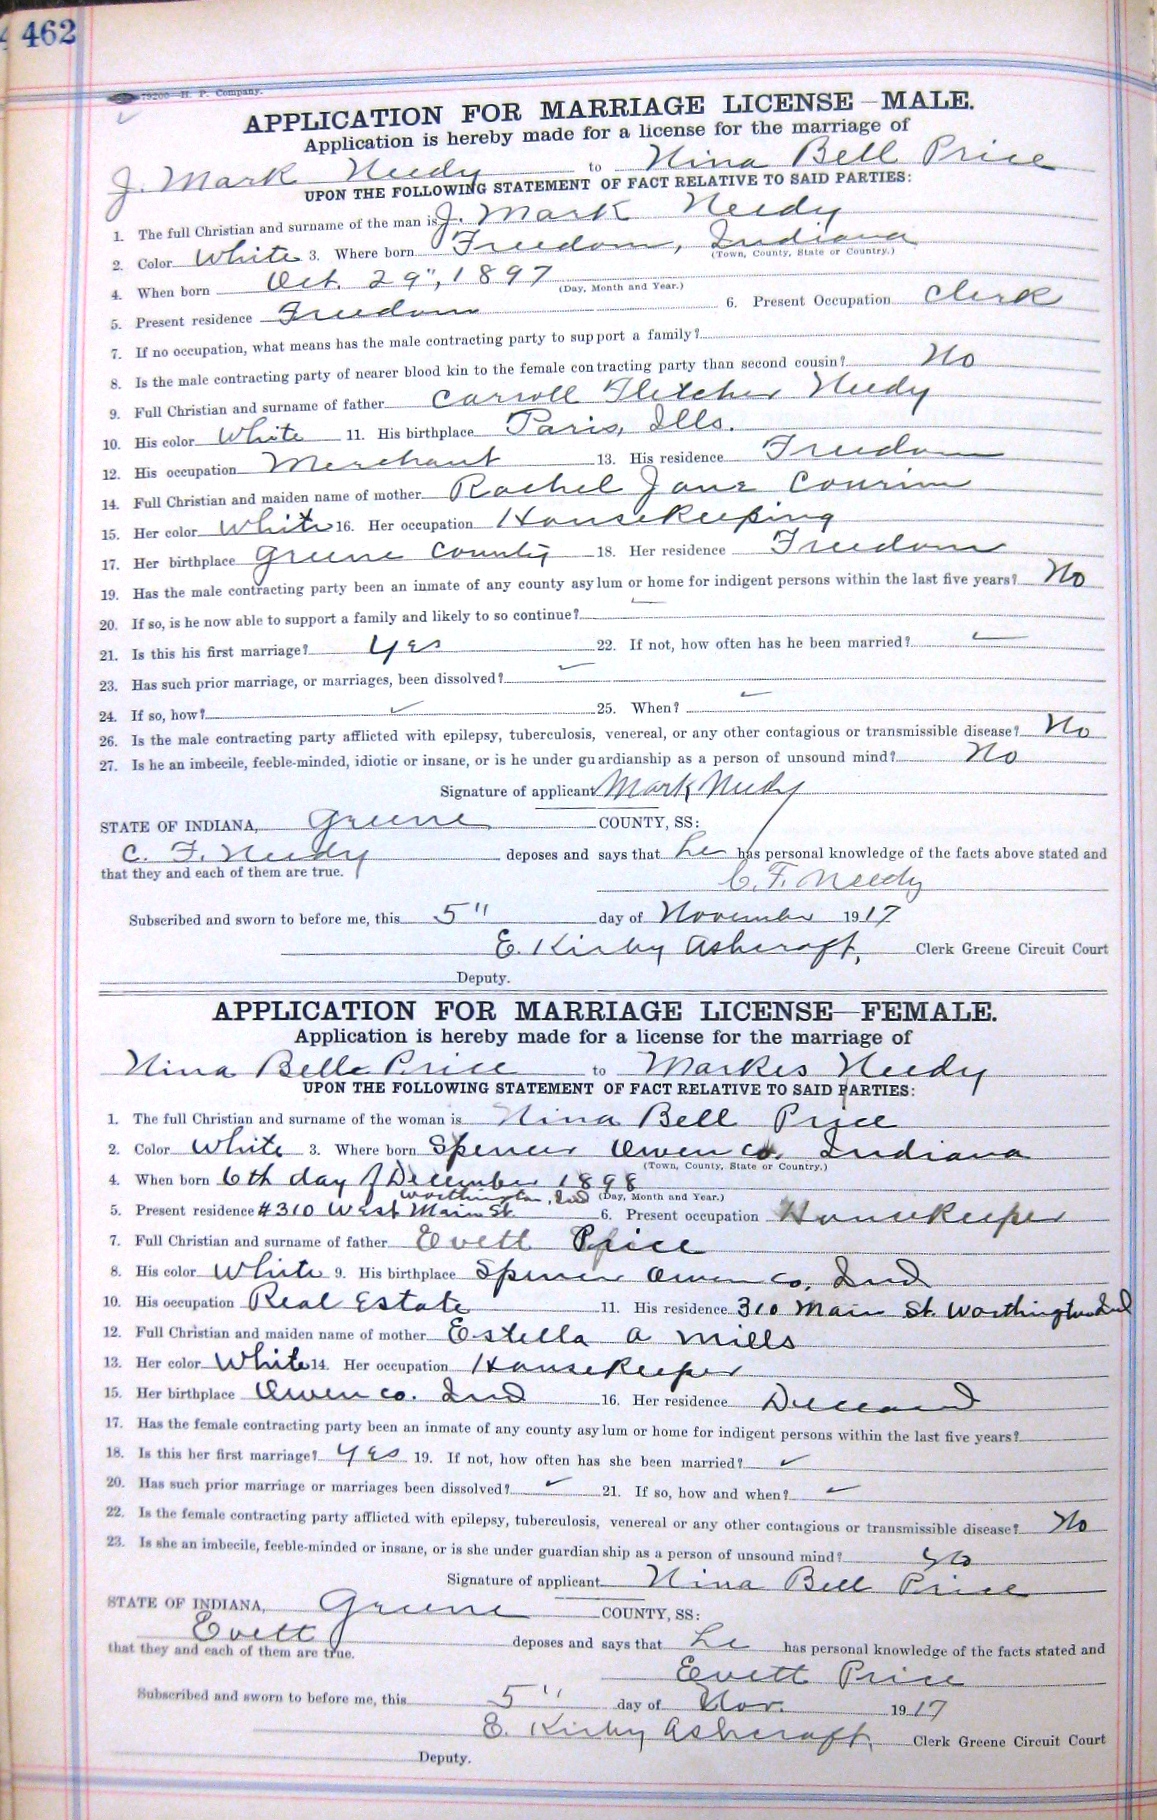 462
79200—H. P. Company.
APPLICATION FOR MARRIAGE LICENSE—MALE.
Application is hereby made for a license for the marriage of
J. Mark Needy to Nina Bell Price
UPON THE FOLLOWING STATEMENT OF FACT RELATIVE TO SAID PARTIES:
1. The full Christian and surname of the man is J. Mark Needy
2. Color White 3. Where born Freedom, Indiana
(Town, County, State or Country.)
4. When born Oct. 29", 1897
(Day, Month and Year.)
5. Present residence Freedom 6. Present Occupation Clerk
7. If no occupation, what means has the male contracting party to support a family?
8. Is the male contracting party of nearer blood kin to the female contracting party than second cousin? No
9. Full Christian and surname of father Carroll Fletcher Needy
10. His color White 11. His birthplace Paris, Ills.
12. His occupation Merchant 13. His residence Freedom
14. Full Christian and maiden name of mother Rachel Jane
15. Her color White 16. Her occupation Housekeeping
17. Her birthplace Greene County 18. Her residence Freedom
19. Has the male contracting party been an inmate of any county asylum or home for indigent persons within the last five years? No
20. If so, is he now able to support a family and likely to so continue?
21. Is this his first marriage? Yes 22. If not, how often has he been married?
23. Has such prior marriage, or marriages, been dissolved?
24. If so, how? 25. When?
26. Is the male contracting party afflicted with epilepsy, tuberculosis, venereal, or any other contagious or transmissible disease? No
27. Is he an imbecile, feeble-minded, idiotic or insane, or is he under guardianship as a person of unsound mind? No
Signature of applicant Mark Needy
STATE OF INDIANA, Greene COUNTY, SS:
C. F. Needy deposes and says that he has personal knowledge of the facts above stated and
that they and each of them are true.
C. F. Needy
Subscribed and sworn to before me, this 5" day of November 1917
E. Kirby Ashcraft, Clerk Greene Circuit Court
Deputy.
APPLICATION FOR MARRIAGE LICENSE—FEMALE.
Application is hereby made for a license for the marriage of
Nina Belle Price to Markes Needy
UPON THE FOLLOWING STATEMENT OF FACT RELATIVE TO SAID PARTIES:
1. The full Christian and surname of the woman is Nina Bell Price
2. Color White 3. Where born Spencer Owen Co. Indiana
(Town, County, State or Country.)
4. When born 6th day of December 1898
Worthington, Ind (Day, Month and Year.)
5. Present residence #310 West Main St. 6. Present occupation Housekeeper
7. Full Christian and surname of father Evett Price
8. His color White 9. His birthplace Spencer Owen Co. Ind
10. His occupation Real Estate 11. His residence 310 Main St. Worthington Ind
12. Full Christian and maiden name of mother Estella A Mills
13. Her color White 14. Her occupation Housekeeper
15. Her birthplace Owen Co. Ind 16. Her residence Deceased
17. Has the female contracting party been an inmate of any county asylum or home for indigent persons within the last five years?
18. Is this her first marriage? Yes 19. If not, how often has she been married?
20. Has such prior marriage or marriages been dissolved? 21. If so, how and when?
22. Is the female contracting party afflicted with epilepsy, tuberculosis, venereal or any other contagious or transmissible disease? No
23. Is she an imbecile, feeble-minded or insane, or is she under guardianship as a person of unsound mind? No
Signature of applicant Nina Bell Price
STATE OF INDIANA, Greene COUNTY, SS:
Evett deposes and says that he has personal knowledge of the facts stated and
that they and each of them are true.
Evett Price
Subscribed and sworn to before me, this 5" day of Nov. 1917
E. Kirby Ashcraft, Clerk Greene Circuit Court
Deputy.